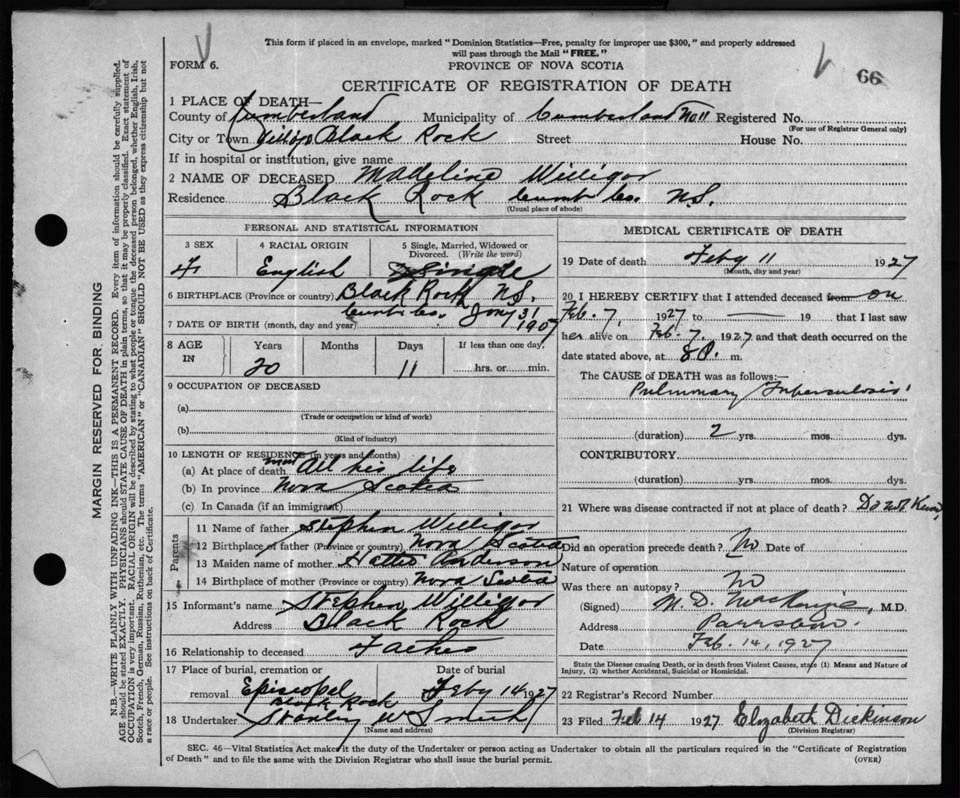 This form if placed in an envelope, marked "Dominion Statistics—Free, penalty for improper use $300," and properly addressed
will pass through the Mail "FREE."
FORM 6.
PROVINCE OF NOVA SCOTIA
66
CERTIFICATE OF REGISTRATION OF DEATH
1 PLACE OF DEATH—
County of Cumberland Municipality of Cumberland No 11 Registered No.
(For use of Registrar General only)
City or Town Black Rock Street House No.
If in hospital or institution, give name
2 NAME OF DECEASED Madeline Willigar
Residence Black Rock Cumb Co. N.S.
(Usual place of abode)
PERSONAL AND STATISTICAL INFORMATION
3 SEX 4 RACIAL ORIGIN 5 Single, Married, Widowed or
Divorced. (Write the word)
F English Single
6 BIRTHPLACE (Province or country) Black Rock N.S.
Cumb Co.
7 DATE OF BIRTH (month, day and year) Jany 31 1907
8 AGE IN Years Months Days If less than one day,
20 11 hrs. or min.
9 OCCUPATION OF DECEASED
(a)
(Trade or occupation or kind of work)
(b)
(Kind of industry)
10 LENGTH OF RESIDENCE (in years and months)
(a) At place of death most All his life
(b) In province Nova Scotia
(c) In Canada (if an immigrant)
Parents
11 Name of father Stephen Willigar
12 Birthplace of father (Province or country) Nova Scotia
13 Maiden name of mother Hattie Anderson
14 Birthplace of mother (Province or country) Nova Scotia
15 Informant's name Stephen Willigar
Address Black Rock
16 Relationship to deceased Father
17 Place of burial, cremation or Date of burial
removal Episcopel Feby 14 1927
Black Rock
18 Undertaker Stanley W Smith
(Name and address)
MEDICAL CERTIFICATE OF DEATH
19 Date of death Feby 11 1927
(Month, day and year)
20 I HEREBY CERTIFY that I attended deceased from on
Feb. 7, 1927 to — 19 that I last saw
her alive on Feb. 7 1927 and that death occurred on the
date stated above, at 8 P. m.
The CAUSE of DEATH was as follows:—
Pulmonary Tuberculosis
(duration) 2 yrs. mos. dys.
CONTRIBUTORY
(duration) yrs. mos. dys.
21 Where was disease contracted if not at place of death? Do not Know
Did an operation precede death? No Date of
Nature of operation
Was there an autopsy? No
(Signed) M. D. MacKenzie, M.D.
Address Parrsboro.
Date Feb. 14, 1927
State the Disease causing Death, or in death from Violent Causes, state (1) Means and Nature of
Injury, (2) whether Accidental, Suicidal or Homicidal.
22 Registrar's Record Number
23 Filed Feb 14 1927 Elizabeth Dickinson
(Division Registrar)
SEC. 46—Vital Statistics Act makes it the duty of the Undertaker or person acting as Undertaker to obtain all the particulars required in the "Certificate of Registration
of Death" and to file the same with the Division Registrar who shall issue the burial permit.
(OVER)
MARGIN RESERVED FOR BINDING
N.B.—WRITE PLAINLY WITH UNFADING INK—THIS IS A PERMANENT RECORD. Every item of information should be carefully supplied.
AGE should be stated EXACTLY. PHYSICIANS should STATE CAUSE OF DEATH in plain terms, so that it may be properly classified. Exact statement of
OCCUPATION is very important. RACIAL ORIGIN will be described by stating to what people or tongue the deceased person belonged, whether English, Irish,
Scotch, French, German, Russian, Ruthenian, etc. The terms "AMERICAN" or "CANADIAN" SHOULD NOT BE USED as they express citizenship but not
a race or people. See instructions on back of Certificate.